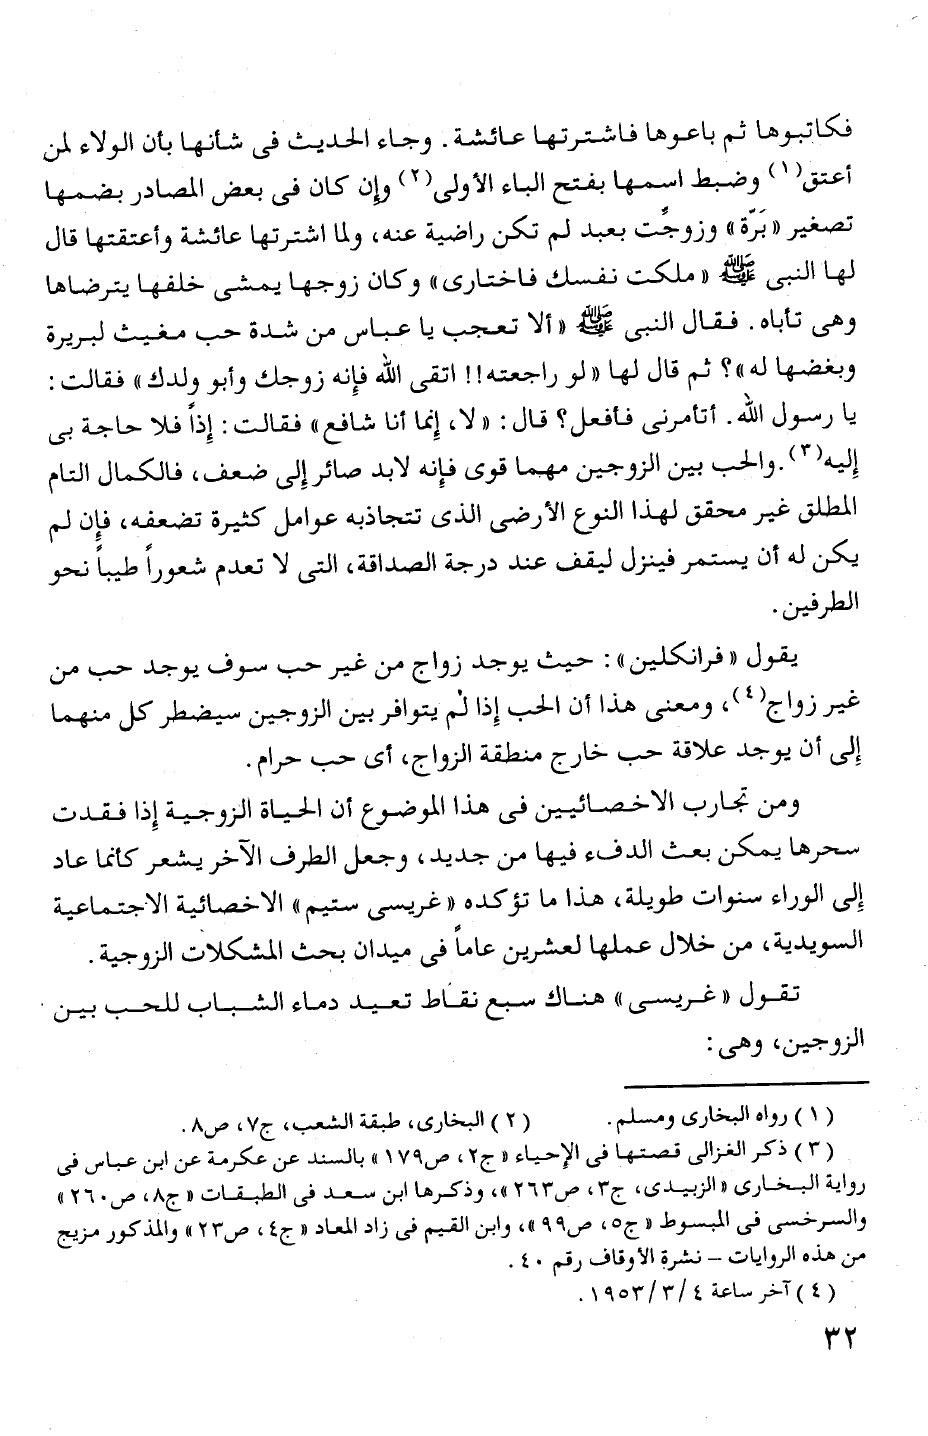 فكاتبوها ثم باعوها فاشترتها عائشة. وجاء الحديث فى شأنها بأن الولاء لمن
أعتق(١) وضبط اسمها بفتح الباء الأولى(٢) وإن كان فى بعض المصادر بضمها
تصغير «بَرّة» وزوجت بعبد لم تكن راضية عنه، ولما اشترتها عائشة وأعتقتها قال
لها النبى ﷺ «ملكت نفسك فاختارى» وكان زوجها يمشى خلفها يترضاها
وهى تأباه. فقال النبى ﷺ «ألا تعجب يا عباس من شدة حب مغيث لبريرة
وبغضها له»؟ ثم قال لها «لو راجعته!! اتقى الله فإنه زوجك وأبو ولدك» فقالت:
يا رسول الله. أتأمرنى فأفعل؟ قال: «لا، إنما أنا شافع» فقالت: إذاً فلا حاجة بى
إليه(٣). والحب بين الزوجين مهما قوى فإنه لابد صائر إلى ضعف، فالكمال التام
المطلق غير محقق لهذا النوع الأرضى الذى تتجاذبه عوامل كثيرة تضعفه، فإن لم
يكن له أن يستمر فينزل ليقف عند درجة الصداقة، التى لا تعدم شعوراً طيباً نحو
الطرفين.
يقول «فرانكلين»: حيث يوجد زواج من غير حب سوف يوجد حب من
غير زواج(٤)، ومعنى هذا أن الحب إذا لم يتوافر بين الزوجين سيضطر كل منهما
إلى أن يوجد علاقة حب خارج منطقة الزواج، أى حب حرام.
ومن تجارب الاخصائيين فى هذا الموضوع أن الحياة الزوجية إذا فقدت
سحرها يمكن بعث الدفء فيها من جديد، وجعل الطرف الآخر يشعر كأنما عاد
إلى الوراء سنوات طويلة، هذا ما تؤكده «غريسى ستيم» الاخصائية الاجتماعية
السويدية، من خلال عملها لعشرين عاماً فى ميدان بحث المشكلات الزوجية.
تقول «غريسى» هناك سبع نقاط تعيد دماء الشباب للحب بين
الزوجين، وهى:
(١) رواه البخارى ومسلم. (٢) البخارى، طبقة الشعب، ج٧، ص٨.
(٣) ذكر الغزالى قصتها فى الإحياء «ج٢، ص١٧٩» بالسند عن عكرمة عن ابن عباس فى
رواية البخارى «الزبيدى، ج٣، ص٢٦٣»، وذكرها ابن سعد فى الطبقات «ج٨، ص٢٦٠»
والسرخسى فى المبسوط «ج٥، ص٩٩»، وابن القيم فى زاد المعاد «ج٤، ص٢٣» والمذكور مزيج
من هذه الروايات – نشرة الأوقاف رقم ٤٠.
(٤) آخر ساعة ٤/٣/١٩٥٣.
٣٢